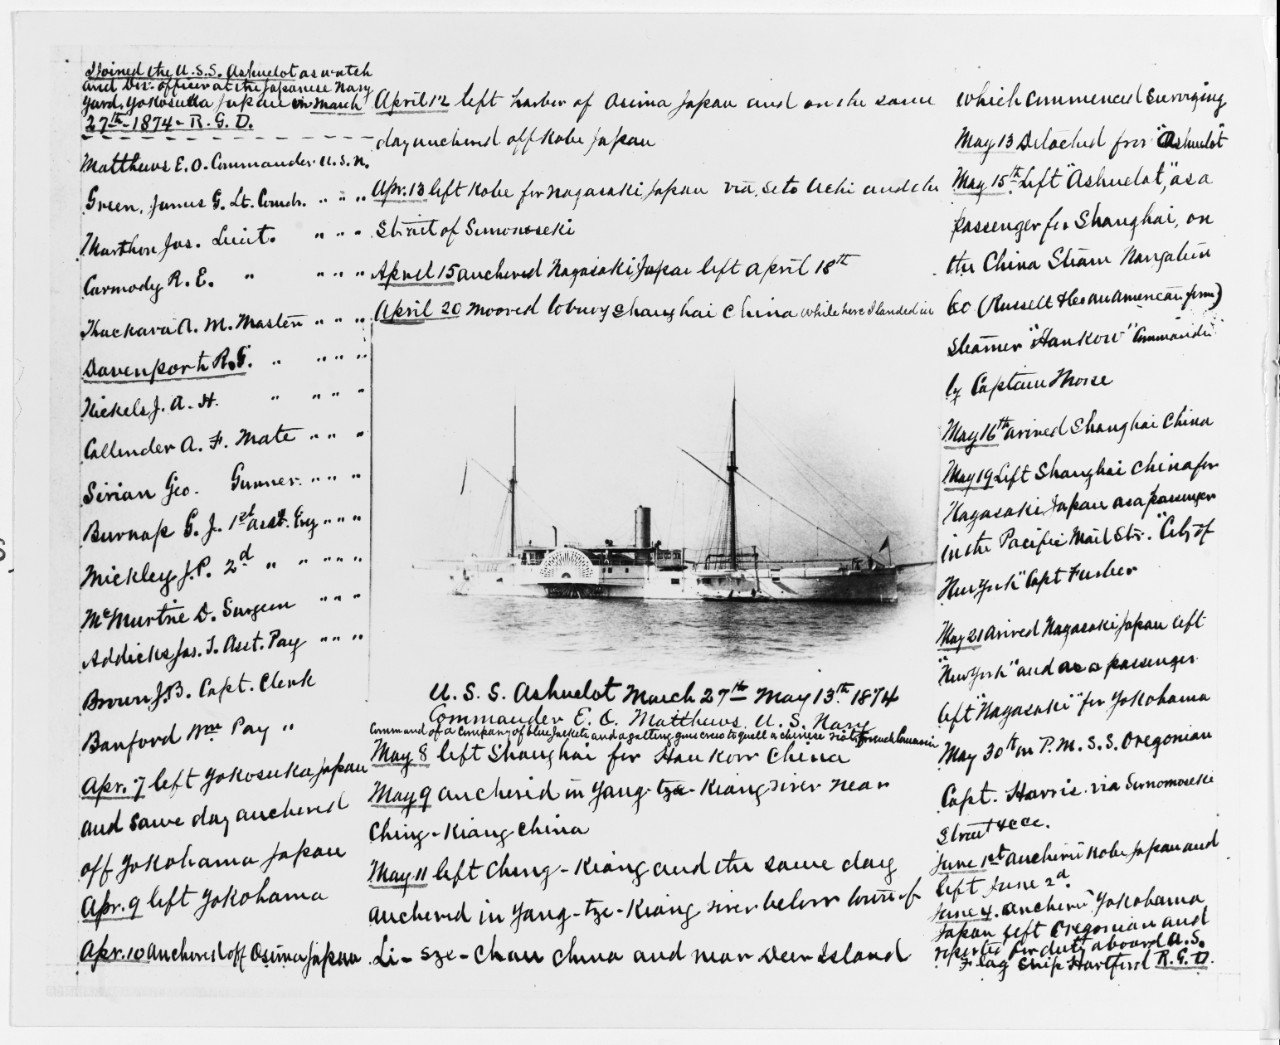 Joined the U.S.S. Ashuelot as watch
and Div. officer at the Japanese Navy
Yard, Yokosuka Japan on March
27th 1874 - R.G.D.
Matthews E.O. Commander U.S.N.
Green, James G. Lt. Comdr. " " "
Marthon Jas. Lieut. " " "
Carmody R.E. " " " "
Thackara A.M. Master " " "
Davenport R.G. " " " "
Nickels J.A.H. " " " "
Callender A.F. Mate " " "
Sirian Geo. Gunner " " "
Burnap G.J. 1st asst. Eng " " "
Mickley J.P. 2d " " " " "
McMurtrie D. Surgeon " " "
Addicks Jas. T. Asst. Pay " " "
Brown J.B. Capt. Clerk
Banford Wm Pay "
Apr. 7 left Yokosuka Japan
and same day anchored
off Yokohama Japan
Apr. 9 left Yokohama
Apr. 10 anchored off Osima Japan
April 12 left harbor of Osima Japan and on the same
day anchored off Kobe Japan
Apr. 13 left Kobe for Nagasaki Japan via Seto Uchi and the
Strait of Simonoseki
April 15 anchored Nagasaki Japan left April 18th
April 20 moored to buoy Shanghai China while here I landed in
U.S.S. Ashuelot March 27th May 13th 1874
Commander E.O. Matthews U.S. Navy
command of a company of blue jackets and a gatling gun crew to quell a chinese riot French Concession
May 8 left Shanghai for Hankow China
May 9 anchored in Yang-tze-Kiang river near
Ching-Kiang China
May 11 left Ching-Kiang and the same day
anchored in Yang-tze-Kiang river below town of
Li-sze-chau China and near Deer Island
which commenced surveying
May 13 Detached from "Ashuelot"
May 15th Left "Ashuelot", as a
passenger for Shanghai, on
the China Steam Navigation
Co (Russell & Co an American firm)
Steamer "Hankow" Commanded
by Captain Morse
May 16th arived Shanghai China
May 19 Left Shanghai China for
Nagasaki Japan as a passenger
in the Pacific Mail Str. "City of
New York" Capt Furber
May 21 arived Nagasaki Japan left
"New York" and as a passenger
left "Nagasaki" for Yokohama
May 30th on P.M.S.S. Oregonian
Capt. Harris via Simonoseki
Strait &cc.
June 1st anchored Kobe Japan and
left June 2d.
June 4. anchored Yokohama
Japan left Oregonian and
reported for duty aboard U.S.
Flag Ship Hartford R.G.D.